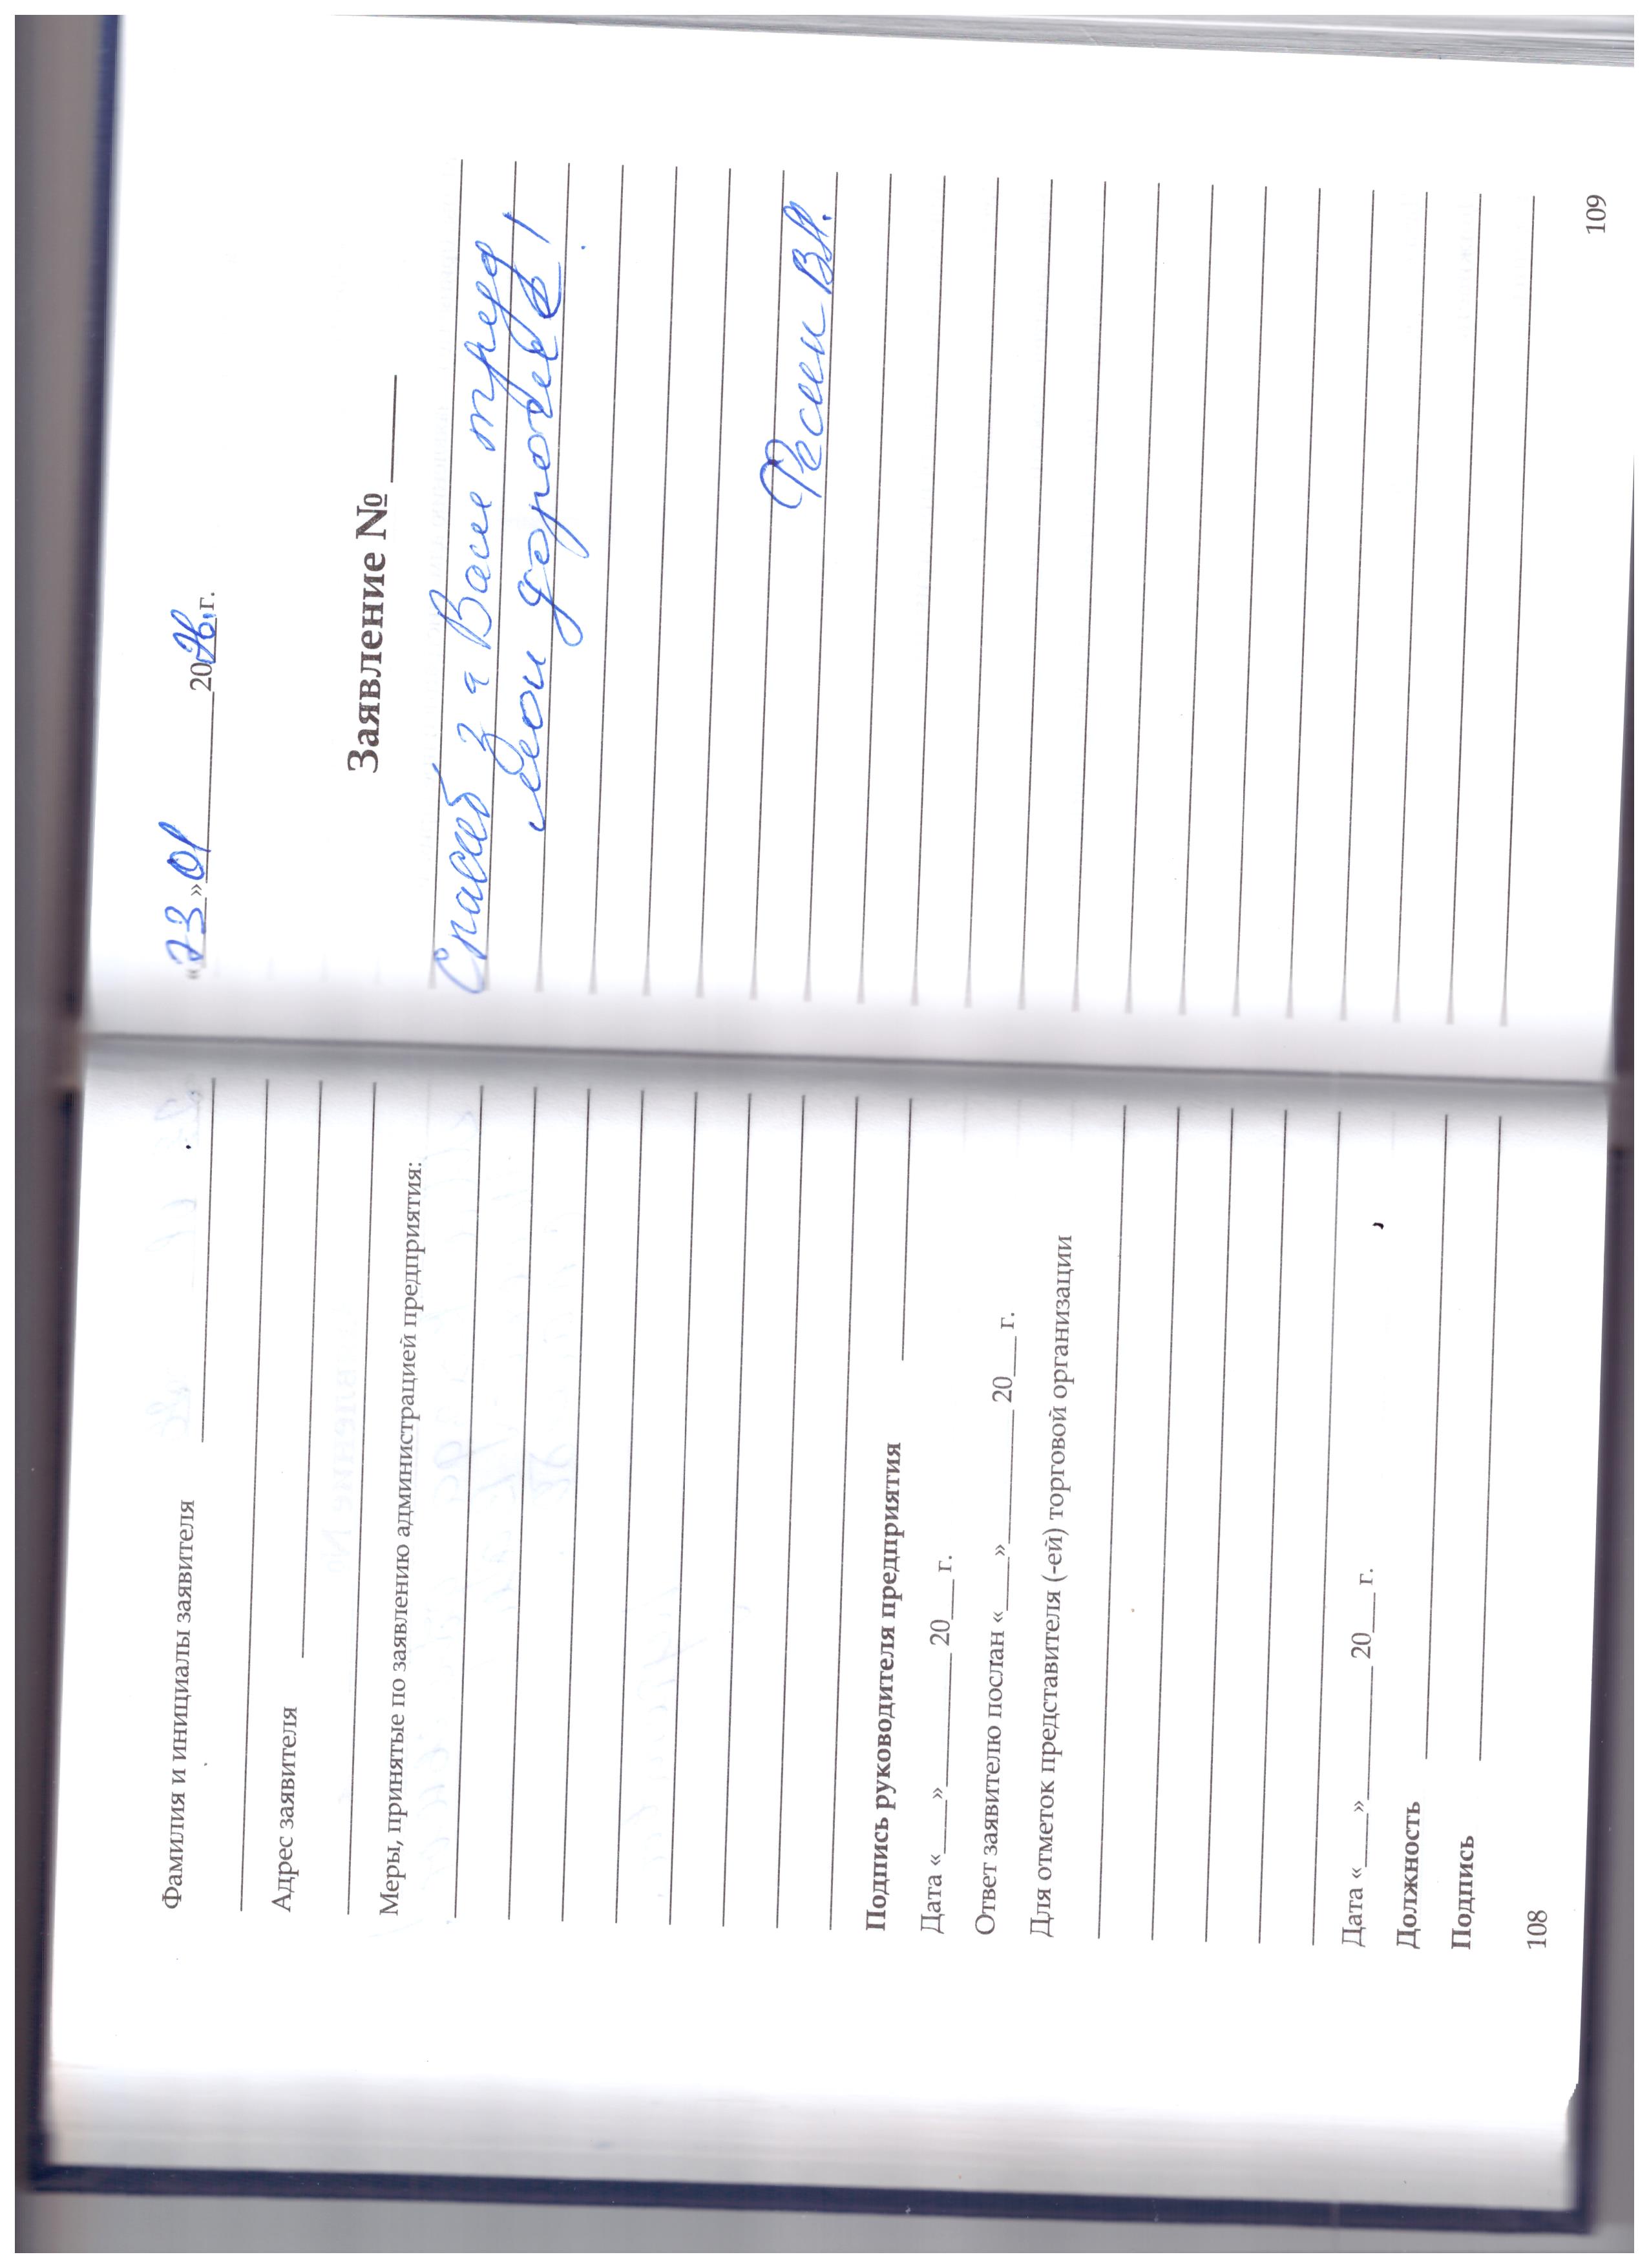 Фамилия и инициалы заявителя
Адрес заявителя
Меры, принятые по заявлению администрацией предприятия:
Подпись руководителя предприятия
Дата «___»__________ 20___ г.
Ответ заявителю послан «____»__________ 20___ г.
Для отметок представителя (-ей) торговой организации
Дата «___»__________ 20___ г.
Должность
Подпись
108
«23»01 2026г.
Заявление № ____
Спасиб за Ваш труд
мои дорогие
Фесин В.
109